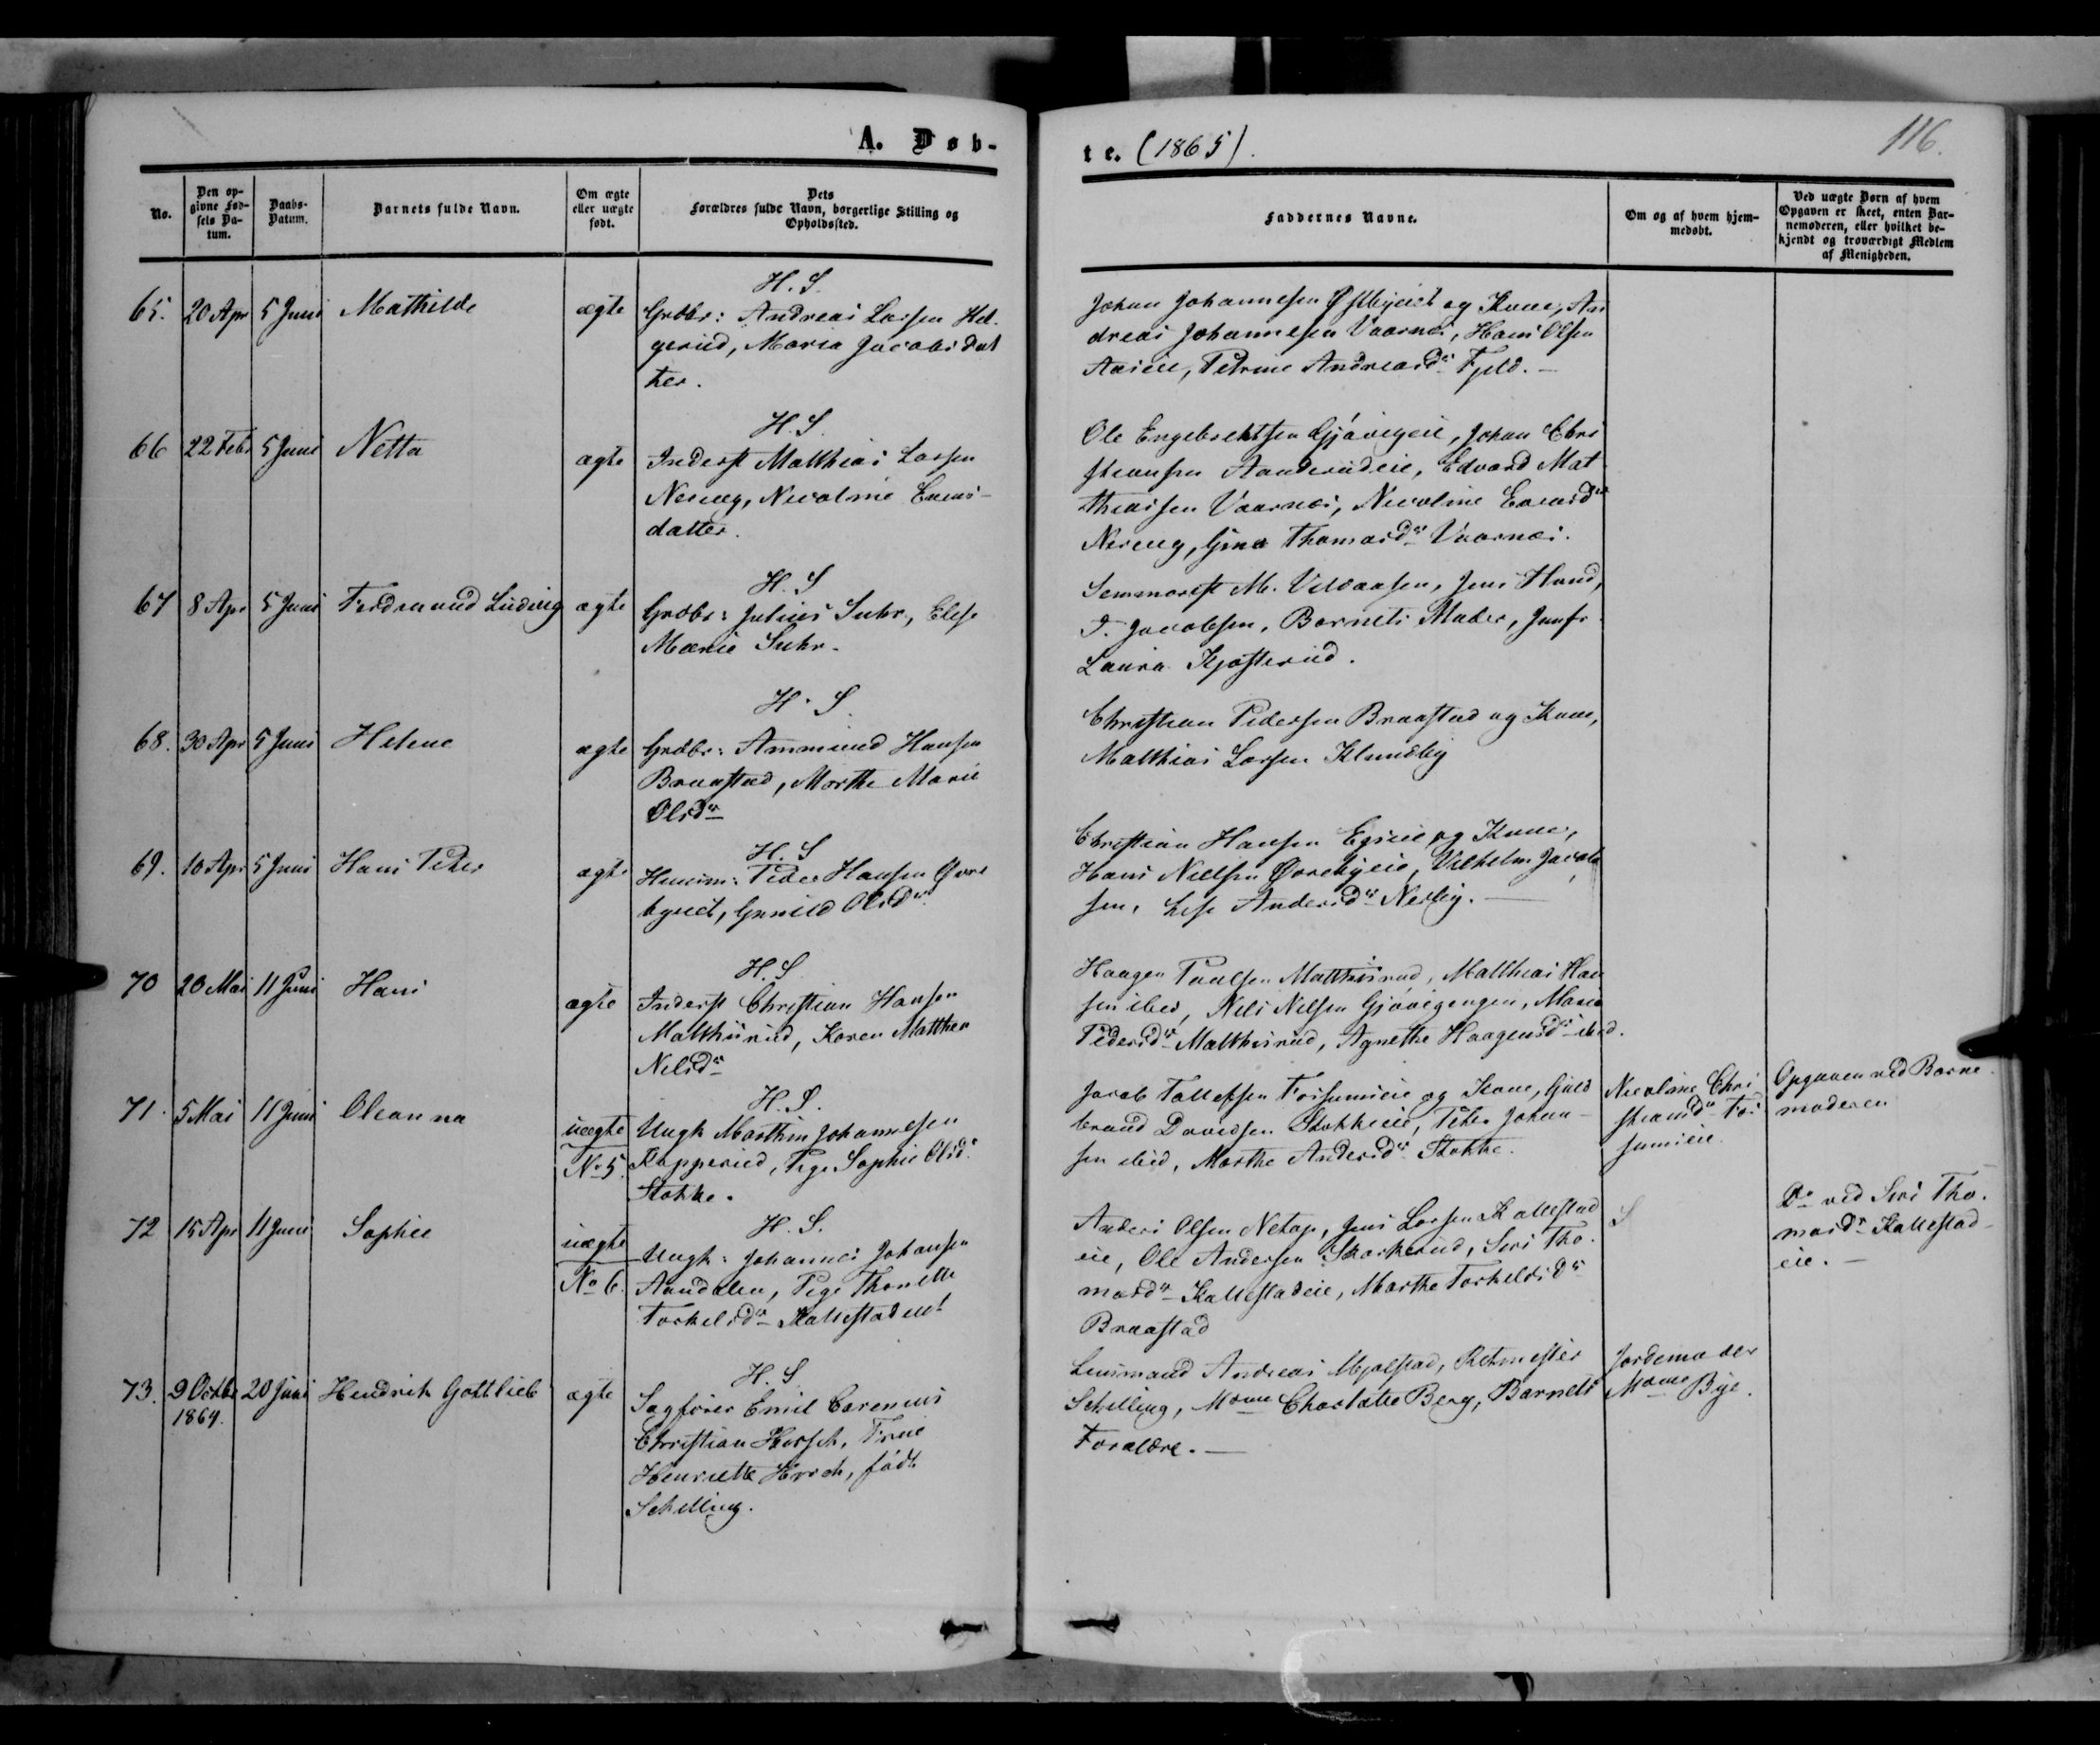 A. Døb-
te. (1865).
116.
No.
Den op-
givne Fød-
sels Da-
tum.
Daabs-
Datum.
Barnets fulde Navn.
Om ægte
eller uægte
født.
Dets
Forældres fulde Navn, borgerlige Stilling og
Opholdssted.
Faddernes Navne.
Om og af hvem hjem-
medøbt.
Ved uægte Børn af hvem
Opgaven er skeet, enten Bar-
nemoderen, eller hvilket be-
kjendt og troværdigt Medlem
af Menigheden.
65. 20 Apr 5 Juni Mathilde ægte
H. S.
Grdbr: Andreas Larsen Hel-
gerud, Maria Jacobsdat
ter.
Johan Johannesen Østbyeiet og Kone, An
dreas Johannesen Vaarnæs, Hans Olsen
Aaseie, Petrine Andreasdr Fjeld. –
66 22 Febr 5 Juni Netta ægte
H. S.
Inderst Matthias Larsen
Nereng, Nicoline Evens-
datter.
Ole Engebrethsen Gjøvigeie, Johan Chri
stiansen Aanderudeie, Edvard Mat
thiassen Vaarnæs, Nicoline Evensdr
Nereng, Gina Thomasdr Vaarnæs.
67 8 Apr 5 Juni Ferdinand Ludvig ægte
H. S
Grdbr: Julius Suhr, Elise
Marie Suhr.
M. Jens Hund,
T. Jacobsen, Barnets Moder, Jomfr
Laura
68. 30 Apr 5 Juni Helene ægte
H. S
Grdbr: Ammund Hansen
Braastad, Marthe Marie
Olsdr
Christian Pedersen Braastad og Kone,
Matthias Larsen Klundby
69. 10 Apr 5 Juni Hans Peter ægte
H. S
Husm: Peder Hansen Øvre
byeiet, Gunild Olsdr
Christian Hansen Egseie og Kone,
Hans Nielsen Øvrebyeie, Vilhelm Jacob
sen, Lise Andersdr Nerby. –
70 20 Mai 11 Juni Hans ægte
H. S
Inderst Christian Hansen
Matthisrud, Karen Matthea
Nilsdr
Haagen Paulsen Matthisrud, Matthias Han
sen ibid, Nils Nilsen Gjøvigengen, Maria
Pedersdr Matthisrud, Agnethe Haagensdr ibid.
71. 5 Mai 11 Juni Oleanna uægte
No 5.
H. S.
Ungk Marthin Johannesen
Kapperud, Pige Sophie Olsdr
Stokke.
Jacob Tollefsen Fossumeie og Kone, Guld
brand Davidsen Stokkeeie, Peter Johan-
sen ibid, Marthe Andersdr Stokke.
Nicoline Chri
stiansdr Fos
sumeie.
Opgaven ved Barne
moderen
72 15 Apr 11 Juni Sophie uægte
No 6.
H. S.
Ungk: Johannes Johansen
Aandalen, Pige Thonette
Torkelsdr Kallestadeiet
Anders Olsen Netop, Jens Larsen Kallestad
eie, Ole Andersen Skarkerud, Siri Tho
masdr Kallestadeie, Marthe Torkelsdr
Braastad
S
Do ved Siri Tho.
masdr Kallestad-
eie. –
73. 9 Octbr 20 Juni Hendrik Gottlieb ægte
1864.
H. S
Sagfører Emil Carenius
Christian Hersch, Frue
Henriette Hersch, født
Schilling.
Lensmand Andreas Mjølstad, Ritmester
Schilling, Mame Charlotte Berg, Barnets
Forældre. –
Jordemoder
Mame Bye.